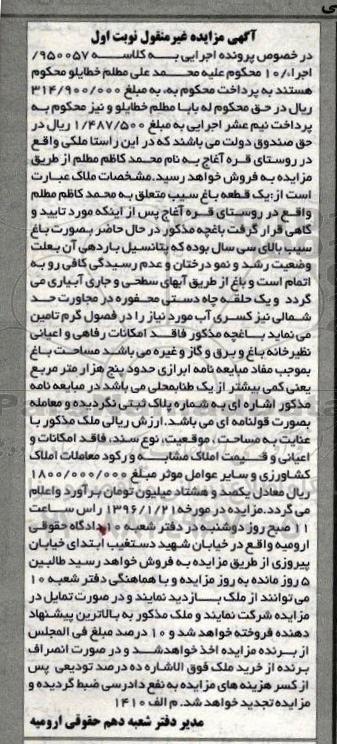 ی
آگهی مزایده غیرمنقول نوبت اول
در خصوص پرونده اجرایی به کلاسه ۹۵۰۰۵۷/
اجراء/۱۰ محکوم علیه محمد علی مظلم خطایلو محکوم
هستند به پرداخت محکوم به، به مبلغ ۳۱۴/۹۰۰/۰۰۰
ریال در حق محکوم له بابا مظلم خطایلو و نیز محکوم به
پرداخت نیم عشر اجرایی به مبلغ ۱/۴۸۷/۵۰۰ ریال در
حق صندوق دولت می باشند که در این راستا ملکی واقع
در روستای قره آغاج به نام محمد کاظم مظلم از طریق
مزایده به فروش خواهد رسید.مشخصات ملاک عبارت
است از:یک قطعه باغ سیب متعلق به محمد کاظم مظلم
واقع در روستای قره آغاج پس از اینکه مورد تایید و
گاهی قرار گرفت باغچه مذکور در حال حاضر بصورت باغ
سیب بالای سی سال بوده که پتانسیل باردهی آن بعلت
وضعیت رشد و نمو درختان و عدم رسیدگی کافی رو به
اتمام است و باغ از طریق آبهای سطحی و جاری آبیاری می
گردد و یک حلقه چاه دستی محفوره در مجاورت حد
شمالی نیز کسری آب مورد نیاز را در فصول گرم تامین
می نماید باغچه مذکور فاقد امکانات رفاهی و اعیانی
نظیر خانه باغ و برق و گاز و غیره می باشد مساحت باغ
بموجب مفاد مبایعه نامه ابرازی حدود پنج هزار متر مربع
یعنی کمی بیشتر از یک طناب محلی می باشد در مبایعه نامه
مذکور اشاره ای به شماره پلاک ثبتی نگردیده و معامله
بصورت قولنامه ای می باشد.ارزش ریالی ملک مذکور با
عنایت به مساحت، موقعیت، نوع سند، فاقد امکانات و
اعیانی و قیمت املاک مشابه و رکود معاملات املاک
کشاورزی و سایر عوامل موثر مبلغ ۱۸۰۰/۰۰۰/۰۰۰
ریال معادل یکصد و هشتاد میلیون تومان برآورد و اعلام
می گردد.مزایده در مورخه ۱۳۹۶/۱/۲۱ راس ساعت
۱۱ صبح روز دوشنبه در دفتر شعبه ۱۰ دادگاه حقوقی
ارومیه واقع در خیابان شهید دستغیب ابتدای خیابان
پیروزی از طریق مزایده به فروش خواهد رسید طالبین
۵ روز مانده به روز مزایده و با هماهنگی دفتر شعبه ۱۰
می توانند از ملک بازدید نمایند و در صورت تمایل در
مزایده شرکت نمایند و ملک مذکور به بالاترین پیشنهاد
دهنده فروخته خواهد شد و ۱۰ درصد مبلغ فی المجلس
از برنده مزایده اخذ خواهد شد و در صورت انصراف
برنده از خرید ملک فوق الاشاره ده درصد تودیعی پس
از کسر هزینه های مزایده به نفع دادرسی ضبط گردیده و
مزایده تجدید خواهد شد. م الف ۱۴۱۰
مدیر دفتر شعبه دهم حقوقی ارومیه